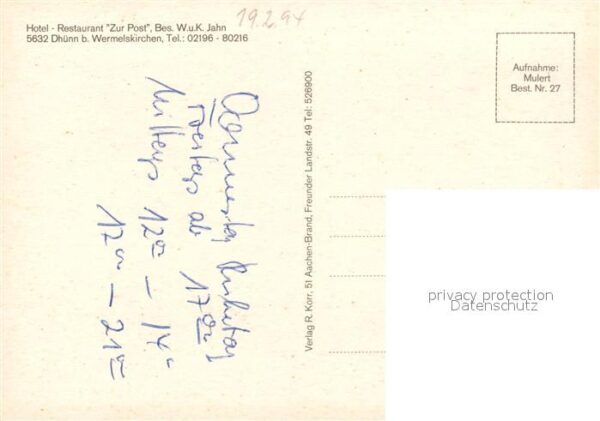 19.2.94
Hotel - Restaurant "Zur Post", Bes. W.u.K. Jahn
5632 Dhünn b. Wermelskirchen, Tel.: 02196 - 80216
Aufnahme:
Mulert
Best. Nr. 27
Donnerstag Ruhetag
Freitags ab 17 00
Mittags 12 00 - 14 00
17 00 - 21 00
Verlag R. Korr, 51 Aachen-Brand, Freunder Landstr. 49 Tel: 526900
privacy protection
Datenschutz